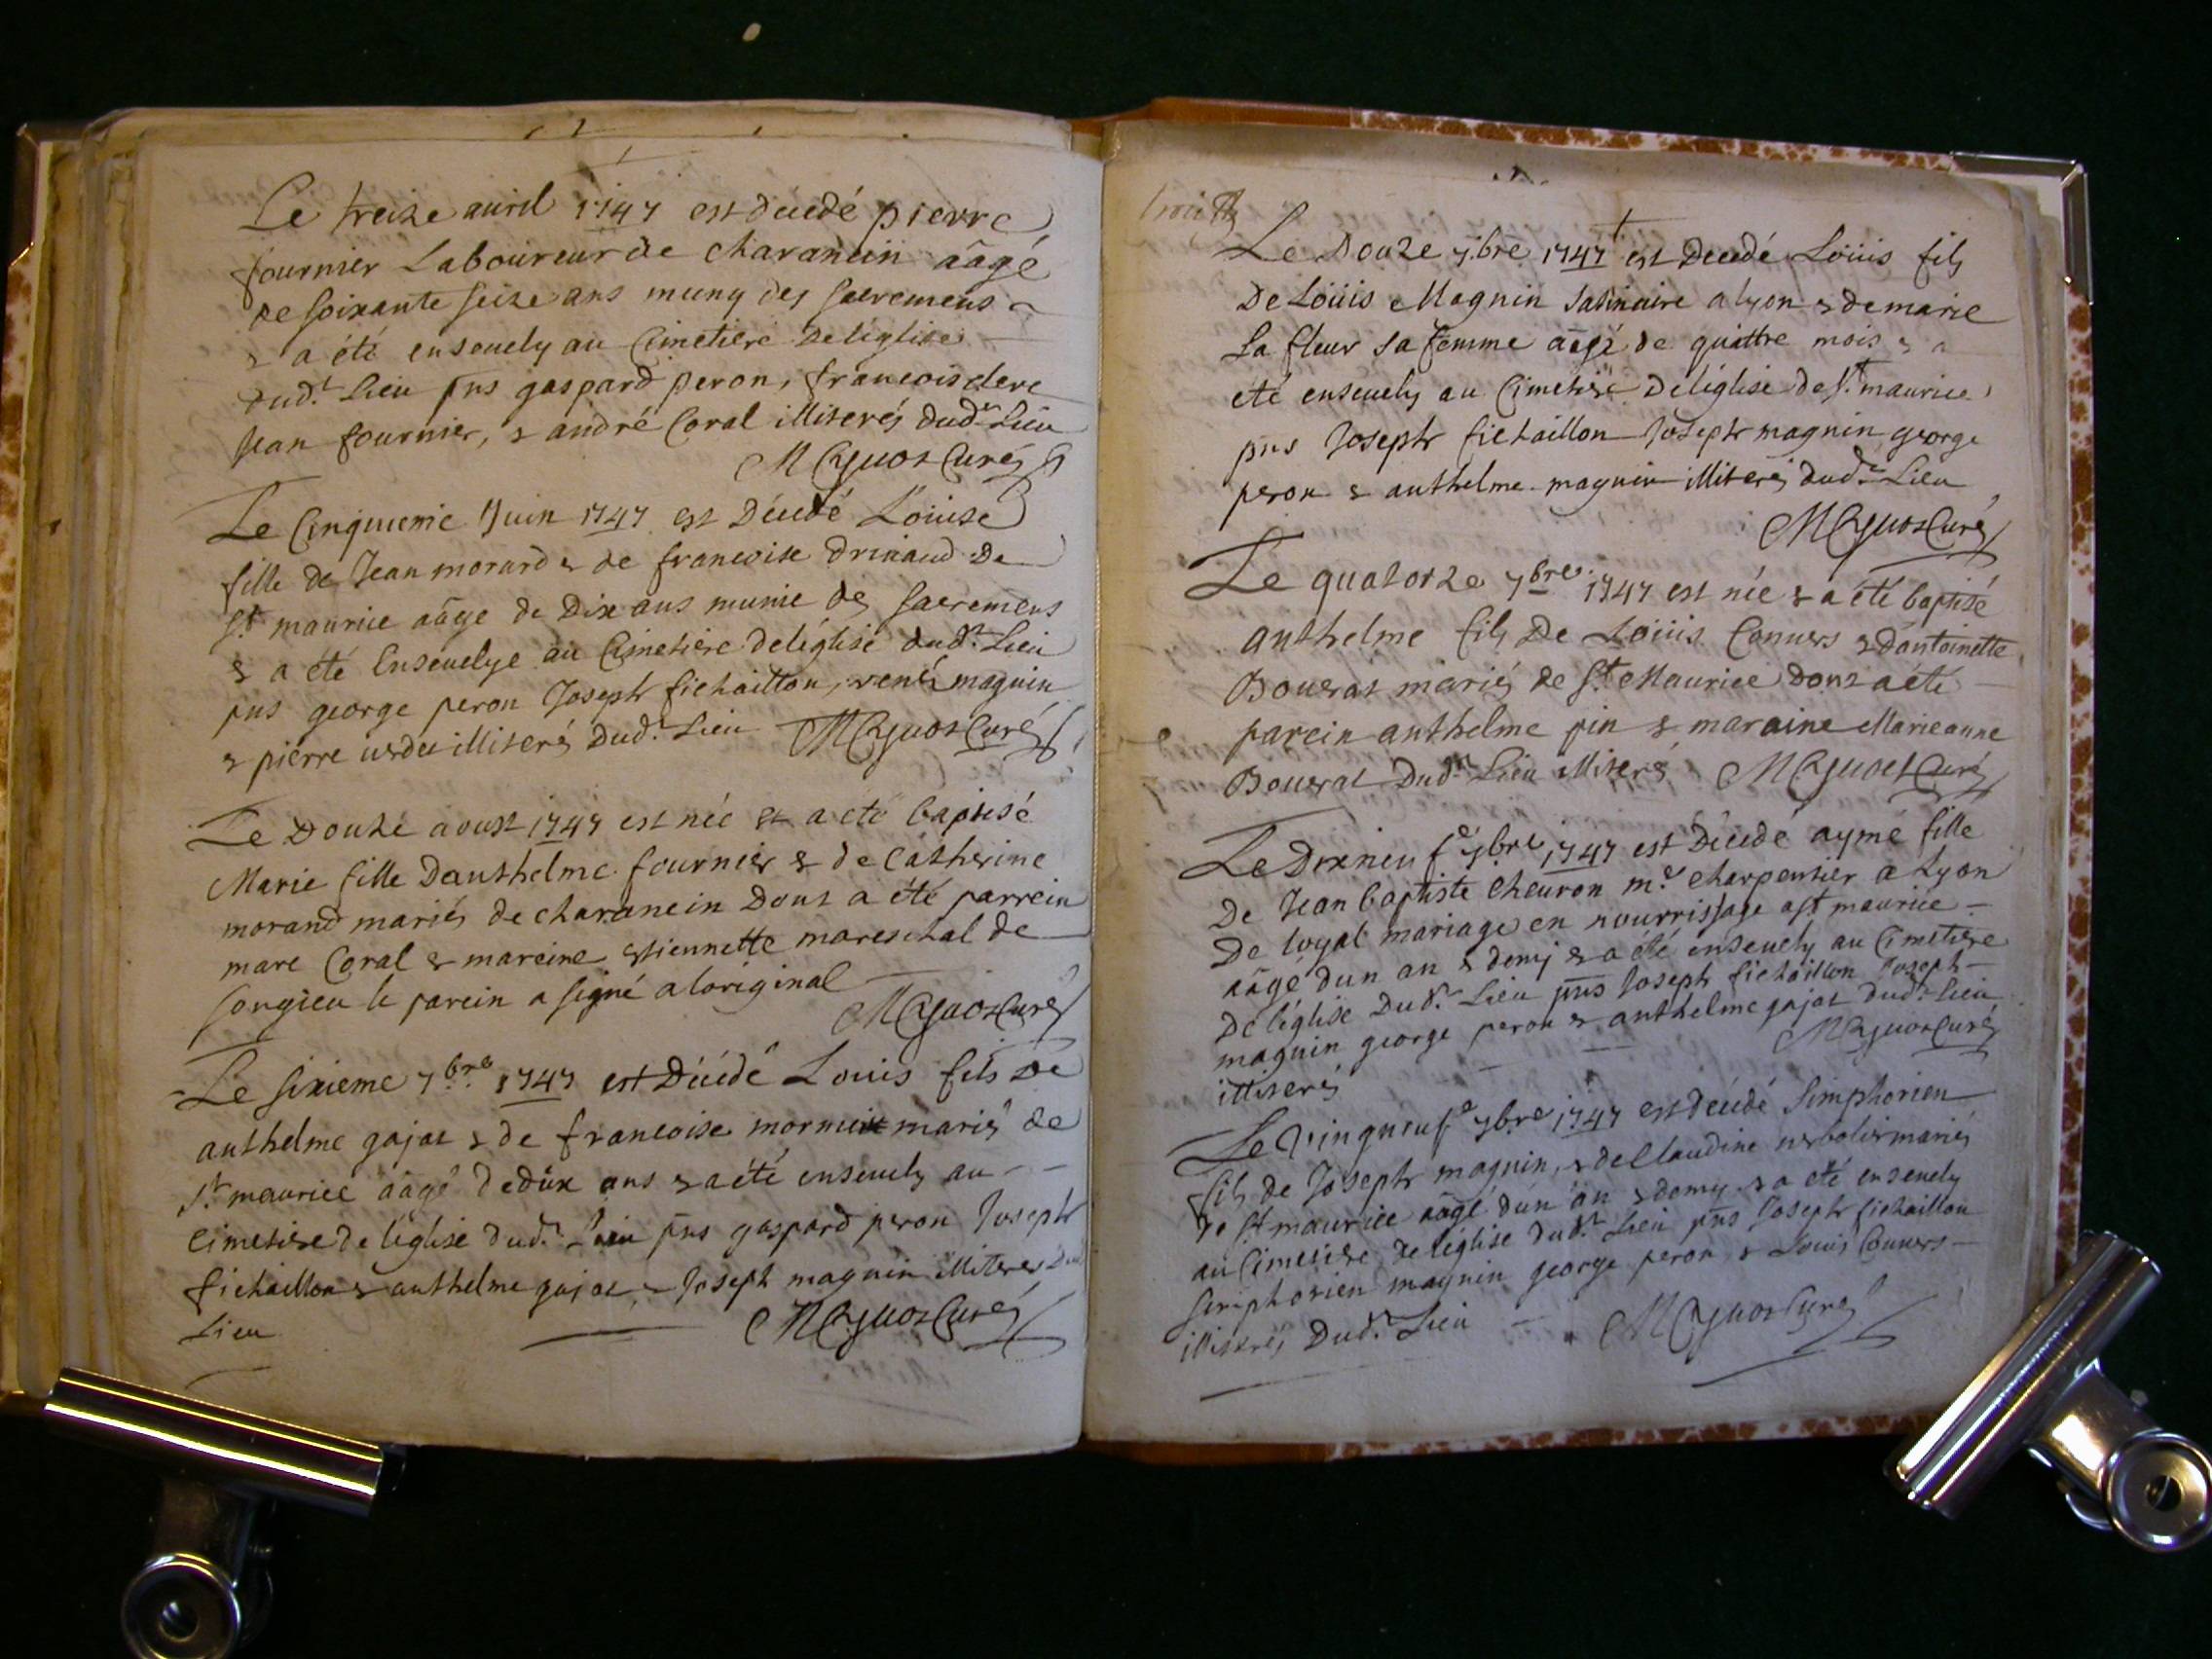 Le treize auril 1747 est déeedé pierre
fournier Laboureur de charanein aâgé
de soixante seize ans muny des sacremens
& a été enseuely au Cimetiere de léglise
dud.t Lieu pns gaspard peron, francois clere
Jean fournier, & andré Coral illiterés dud.t Lieu
Curé
Le Cinquieme Juin 1747 est Déeedé Loüise
fille de Jean morard & de francoise drinaud De
S.t maurice aâge de Dix ans munie des sacremens
& a été Enseuelye au Cimetiere deléglise dud.t Lieu
pns george peron Joseph fichaillon, rené magnin
& pierre illiterés Dud.t Lieu Curé
Le Douze aoust 1747 est née et a été baptisé
Marie fille Danthelme fournier & de Catherine
morand mariés de charanein Dont a été parrein
marc Coral & mareine etiennette mareschal de
songieu le parein a signé a loriginal
Curé
Le sixieme 7.bre 1747 est Déeedé Louis fils De
anthelme gajot & de francoise mariés de
S.t maurice aâgé dedix ans & a été enseuely au
Cimetiere de léglise dud.t Lieu pns gaspard peron Joseph
fichaillon & anthelme gajot & Joseph magnin illiterés Dud
Lieu Curé
Le Douze 7.bre 1747 est Deeedé Loüis fils
De Loüis Magnin Satinaire a lyon & de marie
La fleur sa femme aâgé de quattre mois & a
été enseuely au Cimetiere Deléglise de S.t maurice
pns Joseph fichaillon Joseph magnin george
peron & anthelme magnin illiterés dud.t Lieu
Curé
Le quatorze 7.bre 1747 est née & a été baptisé
anthelme fils De Loüis Conuers & Dantoinette
Bouerat mariés de S.t Maurice dont a été
parein anthelme pin & maraine Marieanne
Bouerat Dud.t Lieu illiterés Curé
Le Dixneuf.e 7.bre 1747 est Déeedé aymé fille
De Jean baptiste cheuron m.e charpentier a Lyon
De loyal mariage en nourrissage a S.t maurice
aâgé dun an & demj & a été enseuely au Cimetiere
De léglise Dud.t Lieu pns Joseph fichaillon Joseph
magnin george peron & anthelme gajot dud.t Lieu
illiterés Curé
Le Vingneuf.e 7bre 1747 est déeedé Simphorien
fils de Joseph magnin, & de Claudine mariés
De S.t maurice aâgé dun an & demy & a été enseuely
au Cimetiere de léglise dud.t Lieu pns Joseph fichaillon
simphorien magnin george peron & Louis Conuers
illiterés Dud.t Lieu Curé